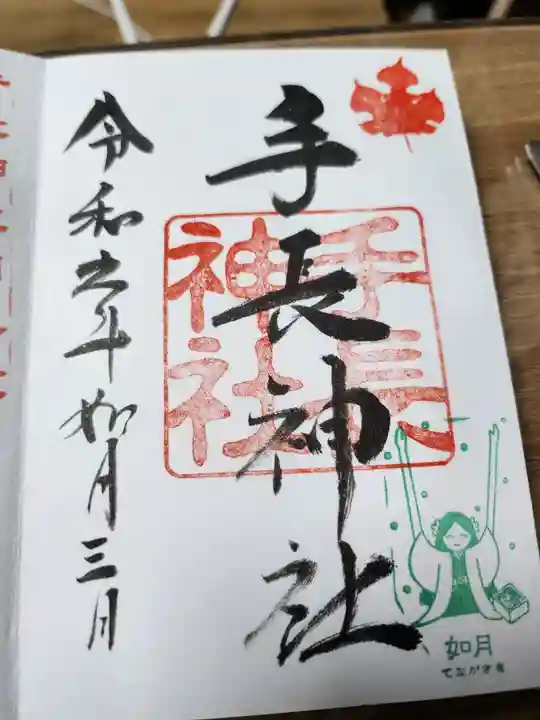 手長神社
手長
神社
令和五年如月三日
如月
てながさま